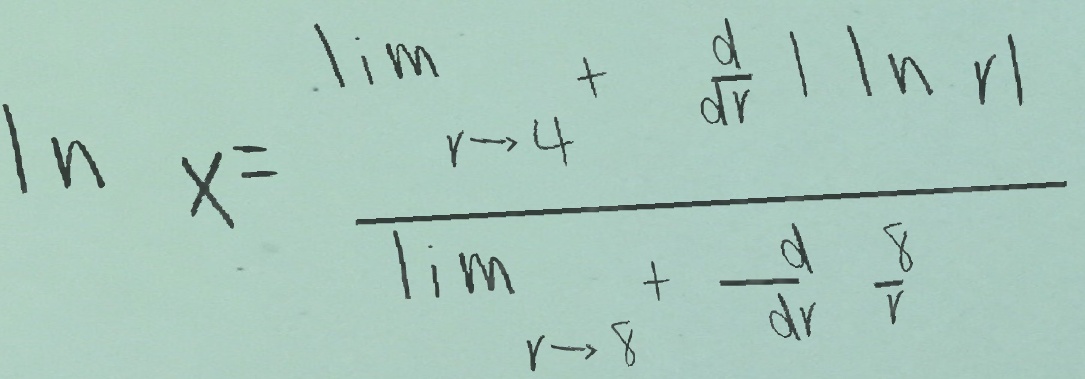 ln x = \frac{\lim_{r \to 4^+} \frac{d}{dr} | ln r |}{\lim_{r \to 8^+} \frac{d}{dr} \frac{8}{r}}